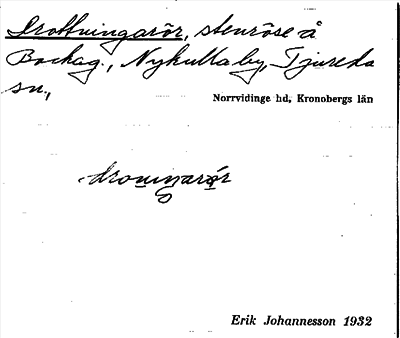 Drottningarör, stenröse å
Backag., Nykulla by, Tjureda
sn.,
Norrvidinge hd, Kronobergs län
Erik Johannesson 1932